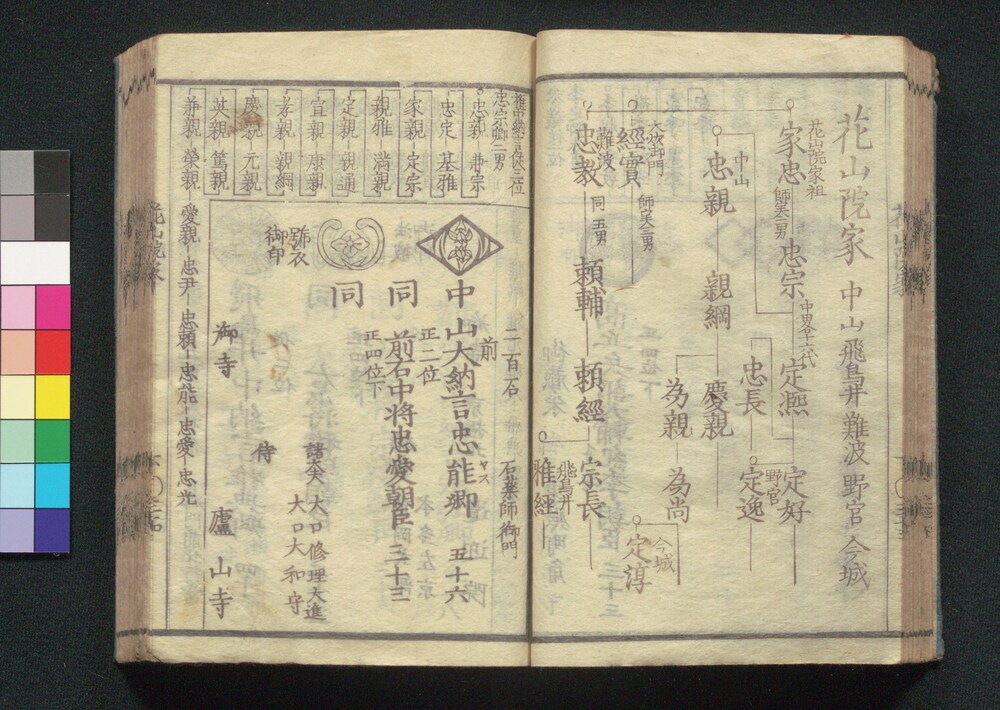 花山院家 中山 飛鳥井 難波 野宮 今城
花山院家祖
家忠
師実二男
忠宗
中畧十六代
定熈
定好
野宮
定逸
忠長
中山
忠親
親綱
慶親
為親
為尚
今城
定淳
大炊御門
經實
師実三男
難波
忠教
同五男
頼輔
頼經
宗長
飛鳥井
雅經
権中納言従三位
忠宗卿二男
忠親 兼宗
忠定 基雅
家親 定宗
親雅 満親
定親 親通
宣親 康親
孝親 親綱
慶親 元親
英親 篤親
兼親 榮親
愛親 忠尹 忠頼 忠能 忠愛 忠光
二百石
石薬師御門
前
中山大納言忠能卿
ヤス
五十六
正二位
同
前右中将忠愛朝臣
三十三
正四位下
同
號衣
御印
諸大夫
大口修理大進
侍
大口大和守
御寺
廬山寺
花山院家